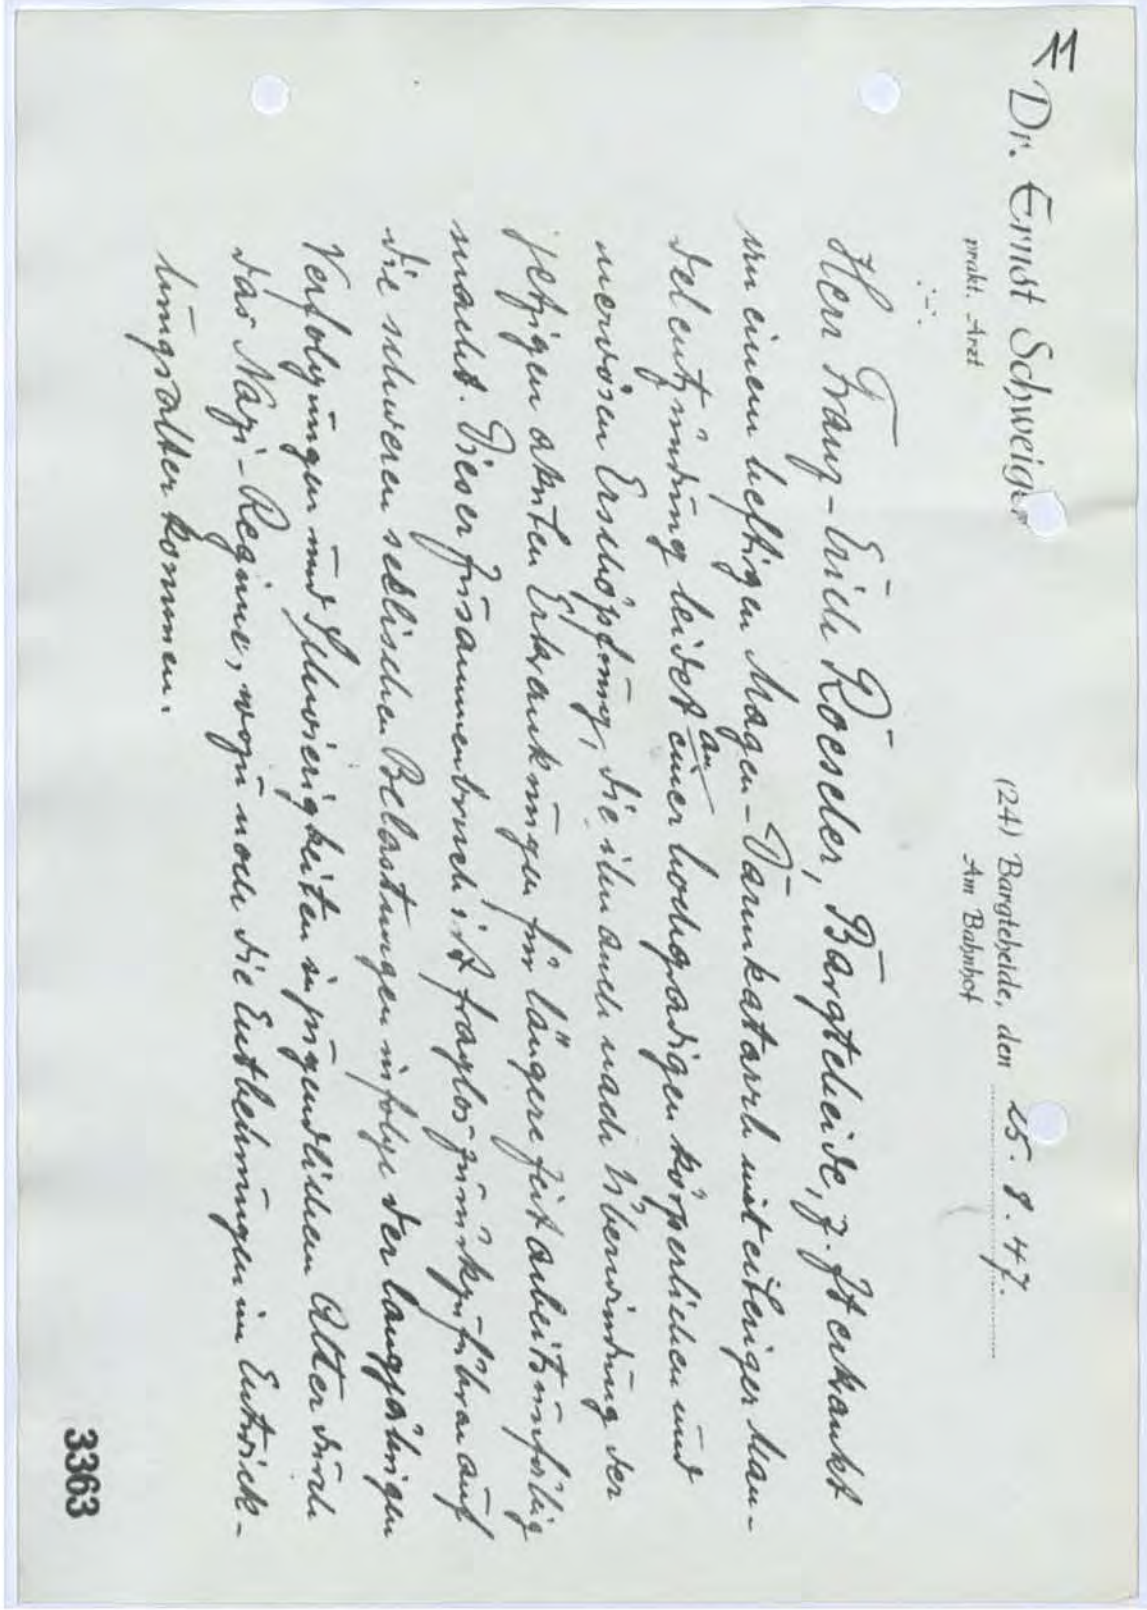 11
Dr. Ernst Schweiger
prakt. Arzt
(24) Bargteheide, den 25. 8. 47.
Am Bahnhof
Herr Franz-Erich Roeseler, Bargteheide, z. Zt erkrankt
an einem heftigen Magen-Darmkatarrh mit eitriger Man-
delentzündung leidet an einer hochgradigen körperlichen und
nervösen Erschöpfung, die ihn auch nach Überwindung der
jetzigen akuten Erkrankungen für längere Zeit arbeitsunfähig
macht. Dieser Zusammenbruch ist fraglos zurückzuführen auf
die schweren seelischen Belastungen infolge der langjährigen
Verfolgungen und Schwierigkeiten im jugendlichen Alter durch
das Nazi-Regime, wozu noch die Entbehrungen im Entwick-
lungsalter kommen.
3363